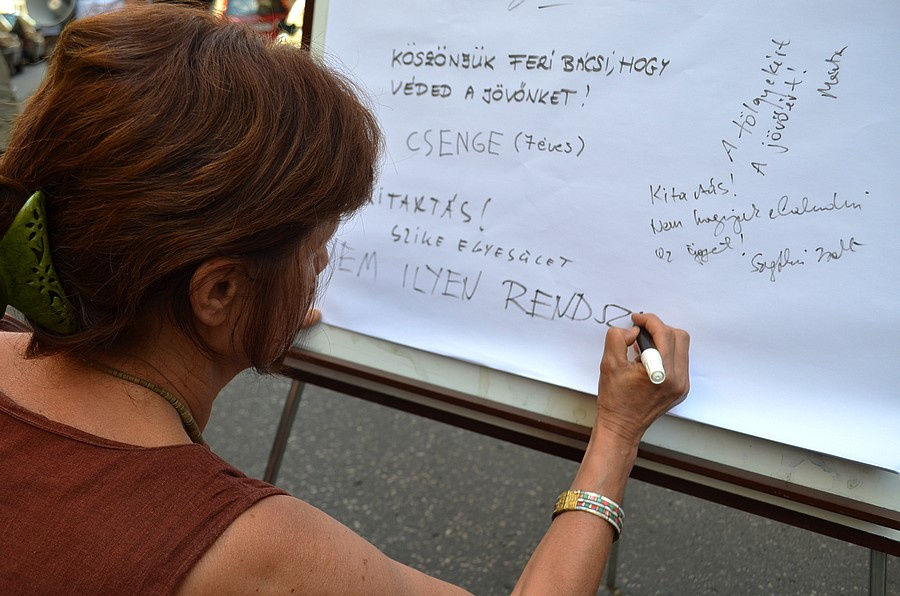 KÖSZÖNJÜK FERI BÁCSI, HOGY
VÉDED A JÖVŐNKET!
CSENGE (7éves)
ITARTÁS!
SZIKE EGYESÜLET
NEM ILYEN RENDSZ
A tölgyekért
A jövőért!
Marta
Kitartás!
Nem hagyjuk
az ügyet!